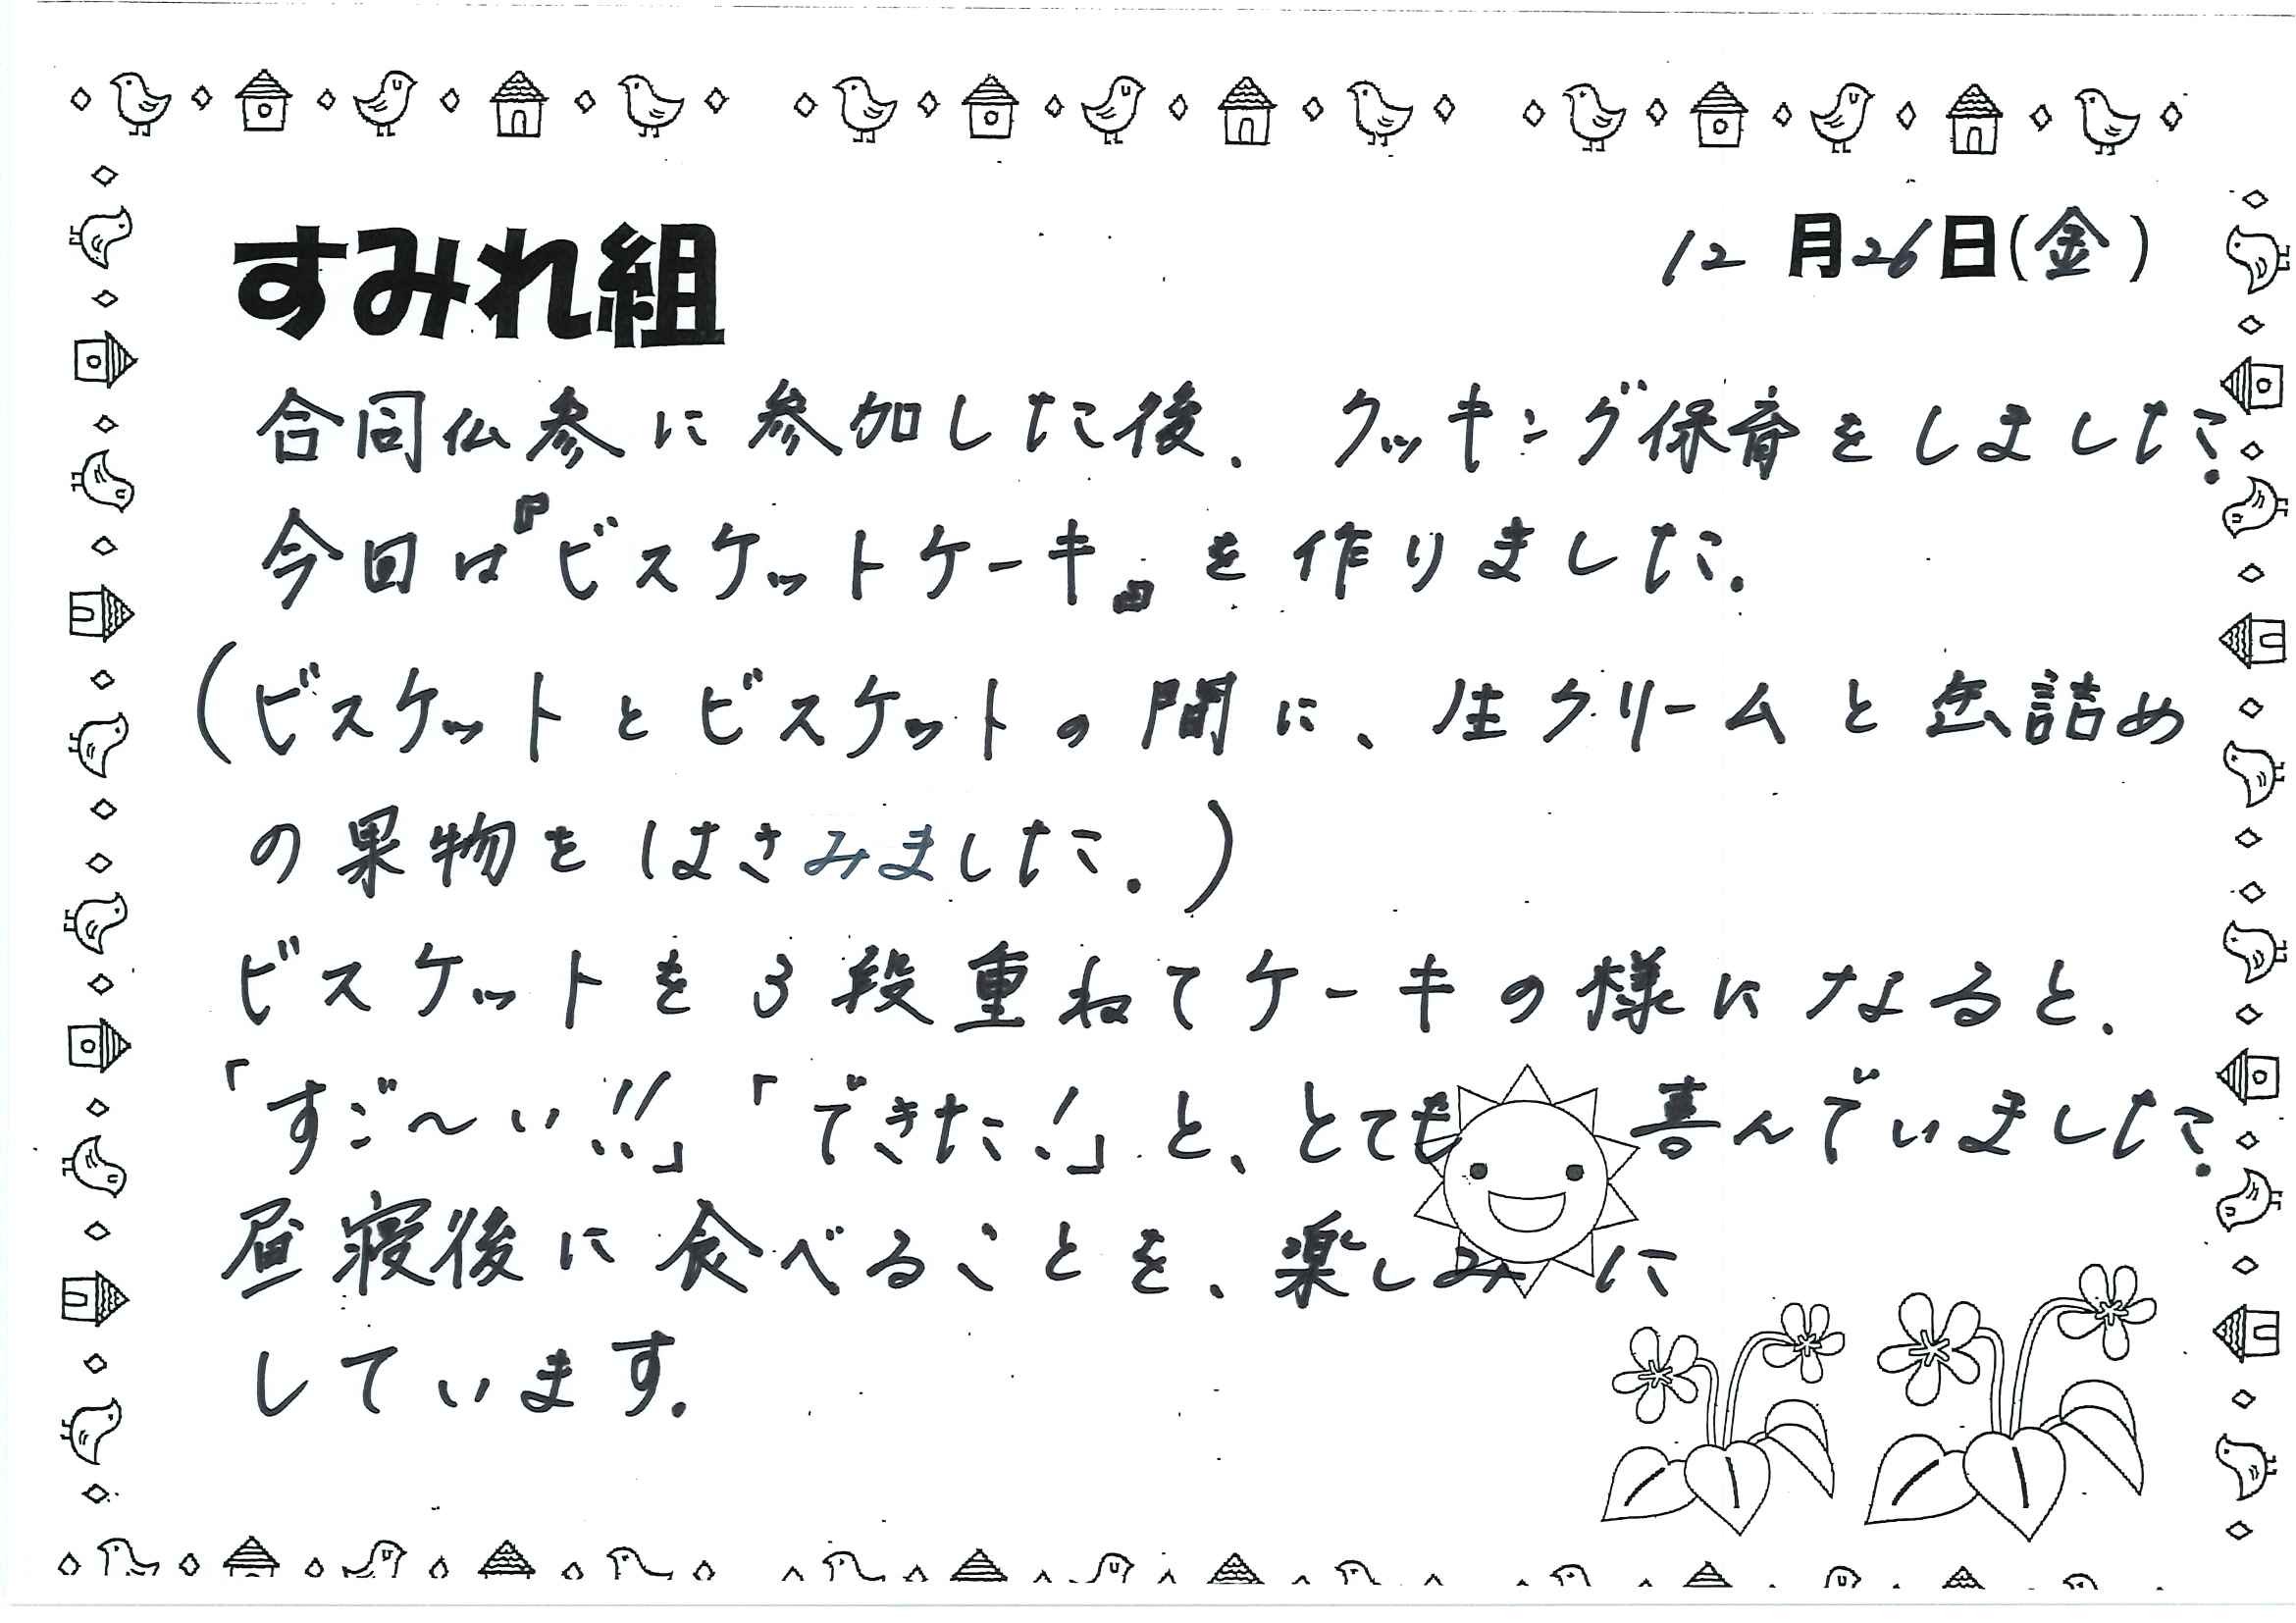 すみれ組
12月26日(金)
合同仏参に参加した後、クッキング保育をしました。
今日は『ビスケットケーキ』を作りました。
(ビスケットとビスケットの間に、生クリームと缶詰め
の果物をはさみました。)
ビスケットを3段重ねてケーキの様になると、
「すご〜い!!」「できた!」と、とても喜んでいました。
昼寝後に食べることを、楽しみに
しています。